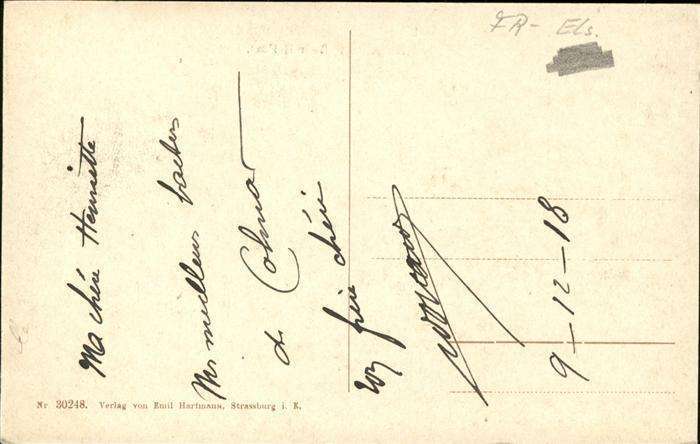 FR- Els.
Ma chère Henriette
Mes meilleurs baisers
de Colmar
Ton frère chéri
9-12-18
Nr 30248. Verlag von Emil Hartmann, Strassburg i. E.